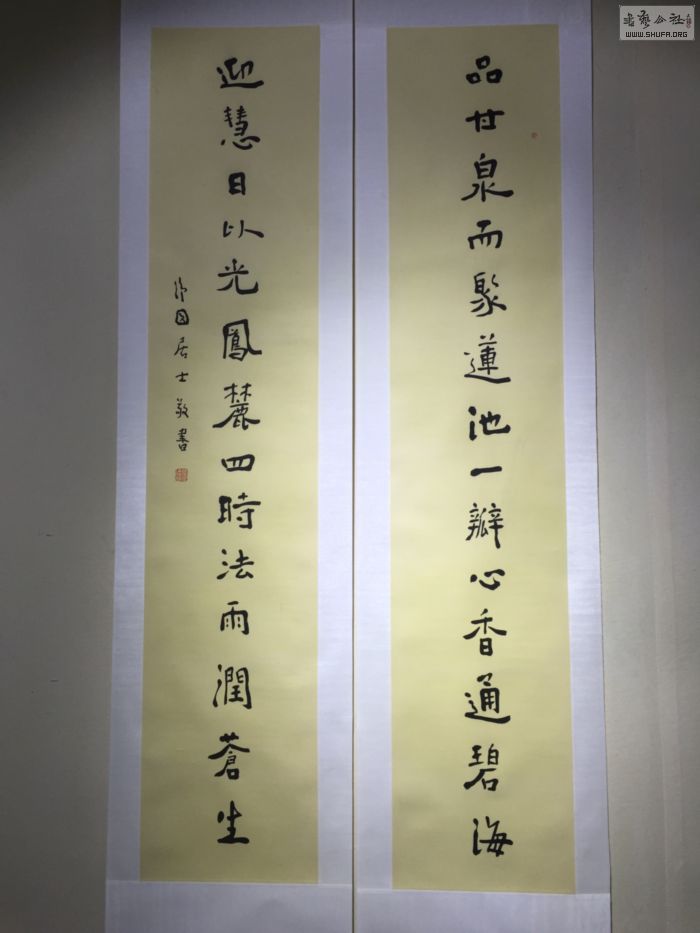 品甘泉而聚蓮池一瓣心香通碧海
迎慧日以光鳳麓四時法雨潤蒼生
居士敬書
書藝公社
WWW.SHUFA.ORG